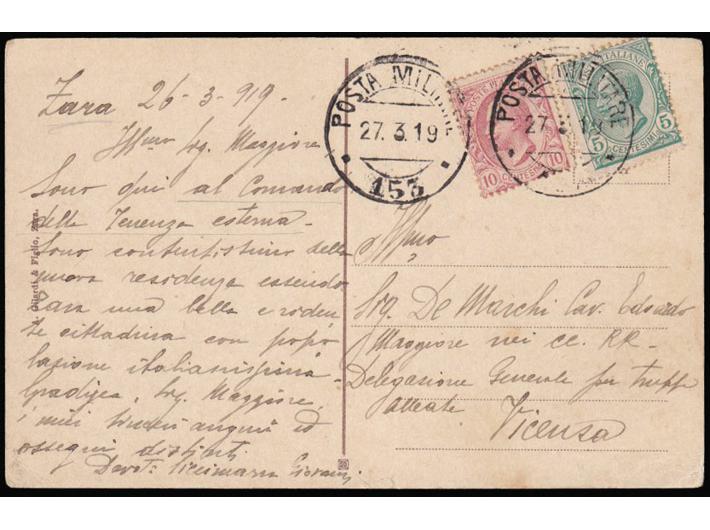 Zara 26-3-919-
Ill.mo Sig. Maggiore
Sono qui al Comando
della Tenenza esterna-
Sono contentissimo della
nuova residenza essendo
Zara una bella e riden
te cittadina con popo
lazione italianissima
Gradisca, Sig. Maggiore,
i miei auguri ed
ossequi distinti
Dev.o Giovanni
& Figlio, Zara.
POSTA MILITARE
27.3.19
153
POSTE ITALIANE
10 CENTESIMI 10
POSTA MILITARE
27.3.19
ITALIANE
5 CENTESIMI 5
Ill.mo
Sig. De Marchi Cav. Edoardo
Maggiore nei CC. RR-
Delegazione Generale per truppe
alleate
Vicenza